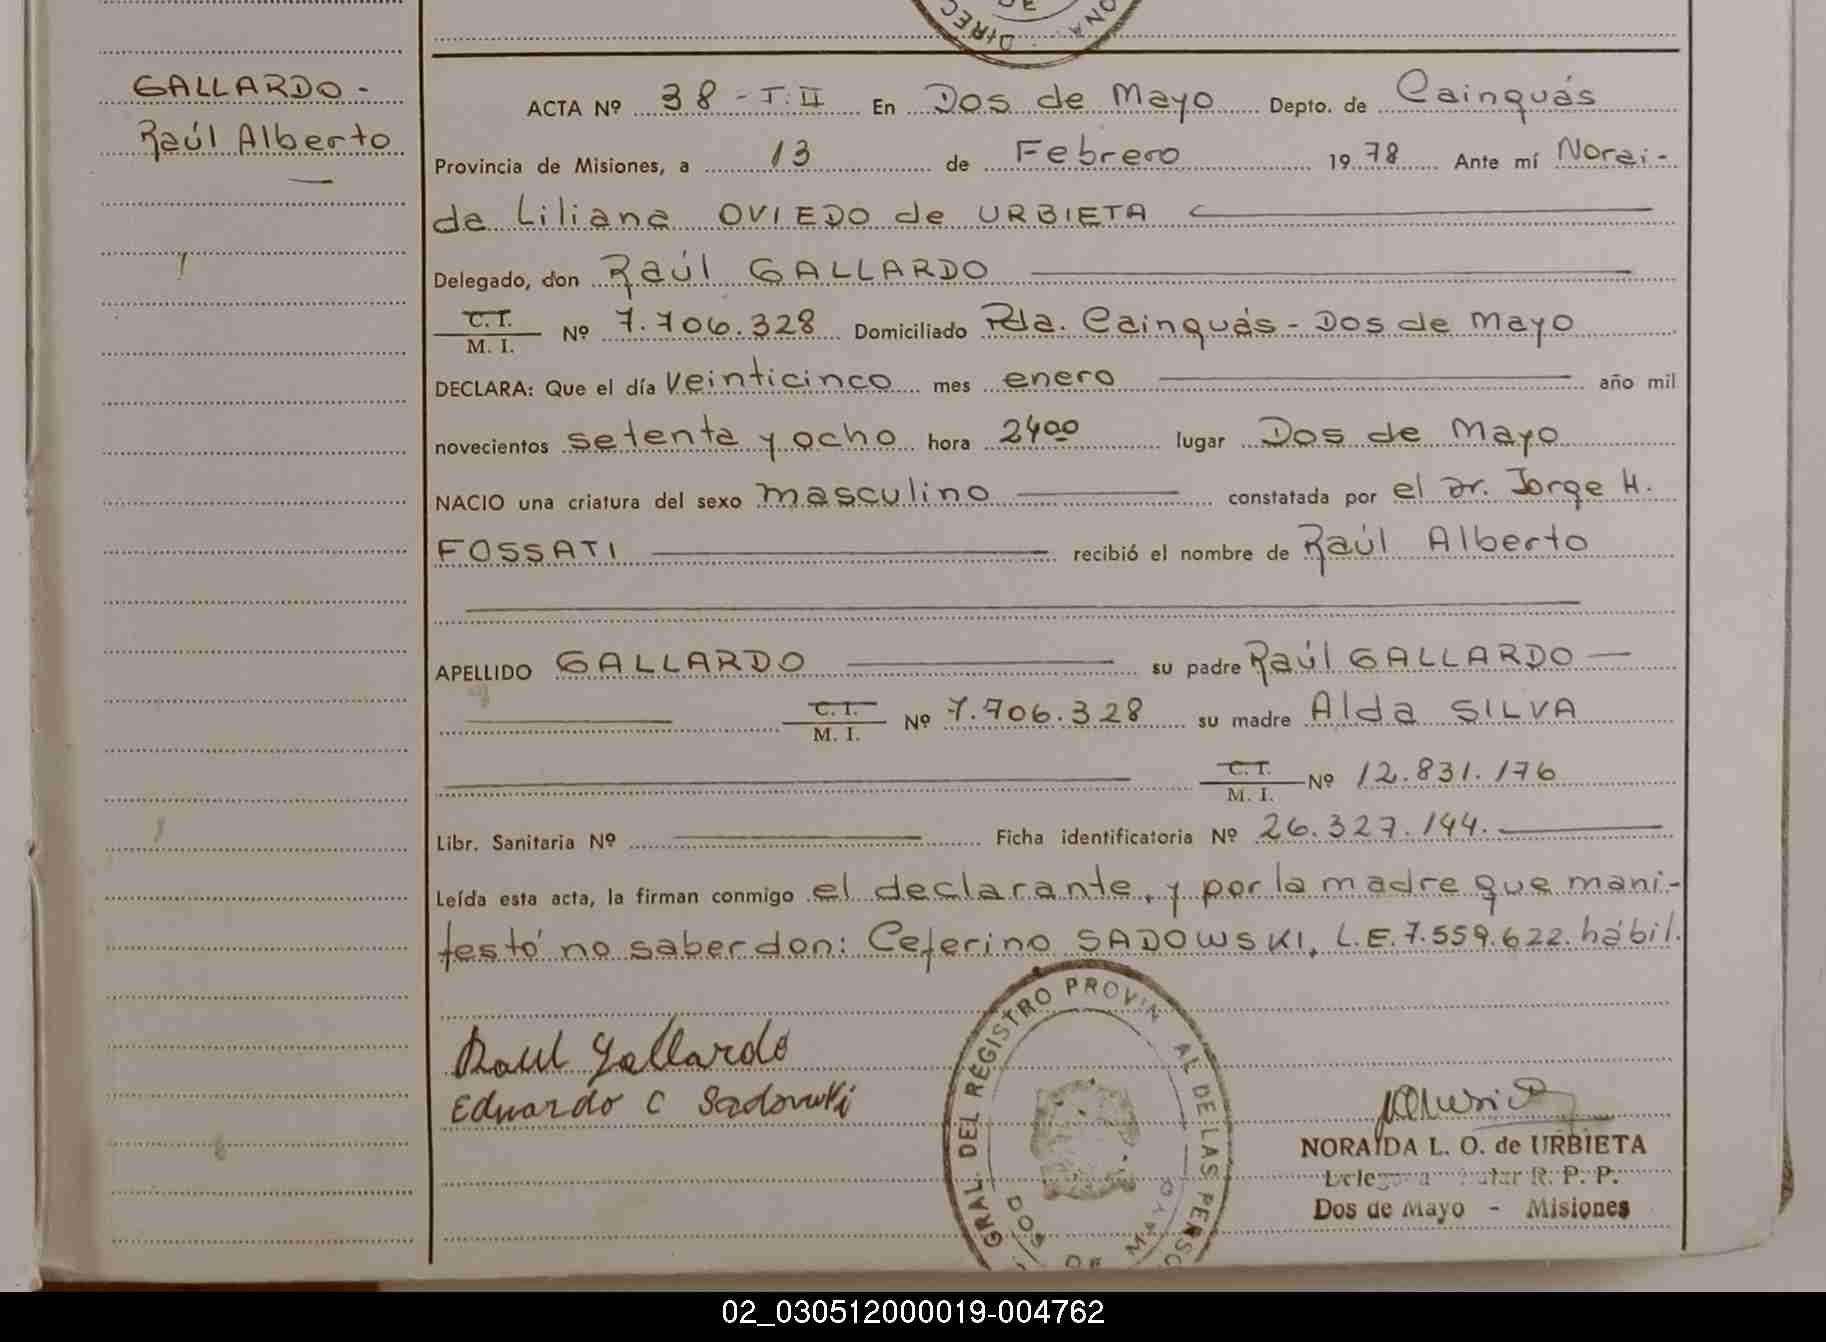 DIREC
DE
ONA
GALLARDO -
Raúl Alberto
ACTA Nº 38 - T: II En Dos de Mayo Depto. de Cainguás
Provincia de Misiones, a 13 de Febrero 1978 Ante mí Norai-
da Liliana OVIEDO de URBIETA
Delegado, don Raúl GALLARDO
C.I. M. I. Nº 7.706.328 Domiciliado Pda. Cainguás - Dos de Mayo
DECLARA: Que el día veinticinco mes enero año mil
novecientos setenta y ocho hora 2400 lugar Dos de Mayo
NACIO una criatura del sexo masculino constatada por el Dr. Jorge H.
FOSSATI recibió el nombre de Raúl Alberto
APELLIDO GALLARDO su padre Raúl GALLARDO
C.I. M. I. Nº 7.706.328 su madre Alda SILVA
C.I. M. I. Nº 12.831.176
Libr. Sanitaria Nº Ficha identificatoria Nº 26.327.144.
Leída esta acta, la firman conmigo el declarante, y por la madre que mani-
festó no saber don: Ceferino SADOWSKI, L.E. 7.559.622. hábil.
Raul Gallardo
Eduardo C Sadowski
GRAL. DEL REGISTRO PROVINCIAL DE LAS PERSO
DOS DE MAYO
NORAIDA L. O. de URBIETA
R. P. P.
Dos de Mayo - Misiones
02_030512000019-004762